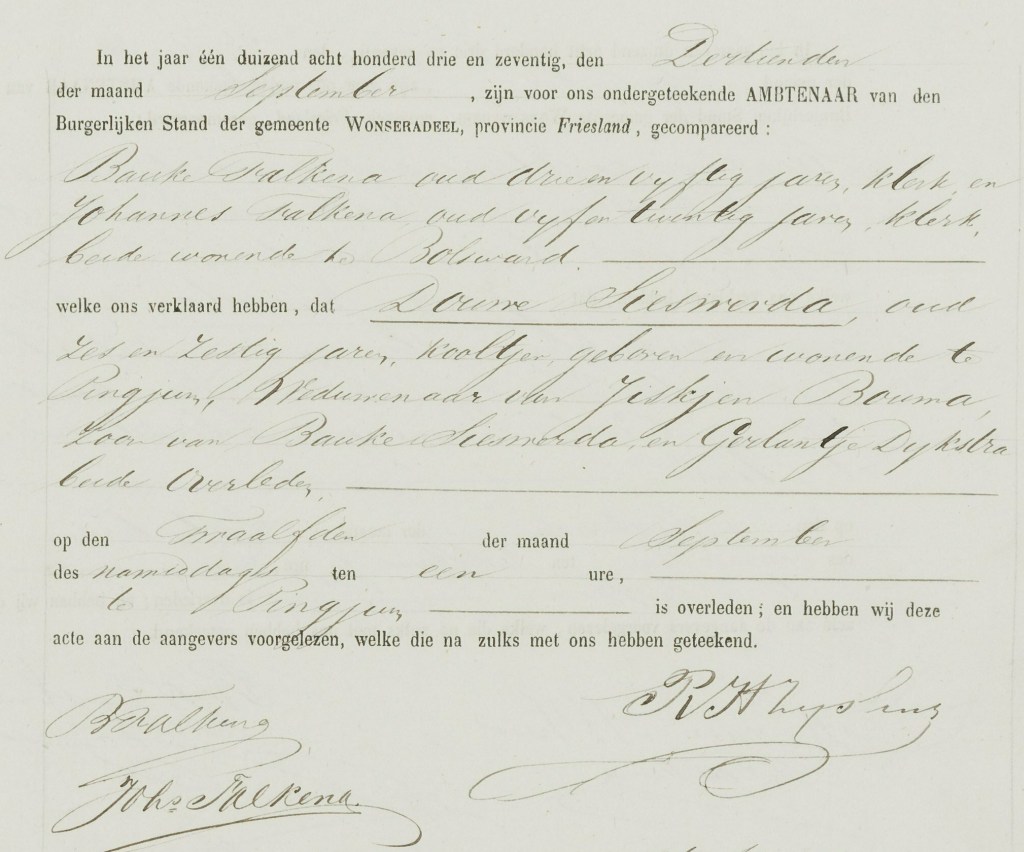 In het jaar één duizend acht honderd drie en zeventig, den Dertienden
der maand September, zijn voor ons ondergeteekende AMBTENAAR van den
Burgerlijken Stand der gemeente WONSERADEEL, provincie Friesland, gecompareerd:
Bauke Falkena oud drieen vyftig jaren, klerk, en
Johannes Falkena oud vyfen twintig jaren, klerk,
beide wonende te Bolsward.
welke ons verklaard hebben, dat Douwe Sieswerda, oud
zes en zestig jaren, kooltjer, geboren en wonende te
Pingjum, Weduwenaar van Jiskjen Bouma,
zoon van Bauke Sieswerda, en Gerlantje Dykstra
beide overleden,
op den Twaalfden der maand September
des namiddags ten een ure,
te Pingjum is overleden; en hebben wij deze
acte aan de aangevers voorgelezen, welke die na zulks met ons hebben geteekend.
B Falkena
Johs Falkena.